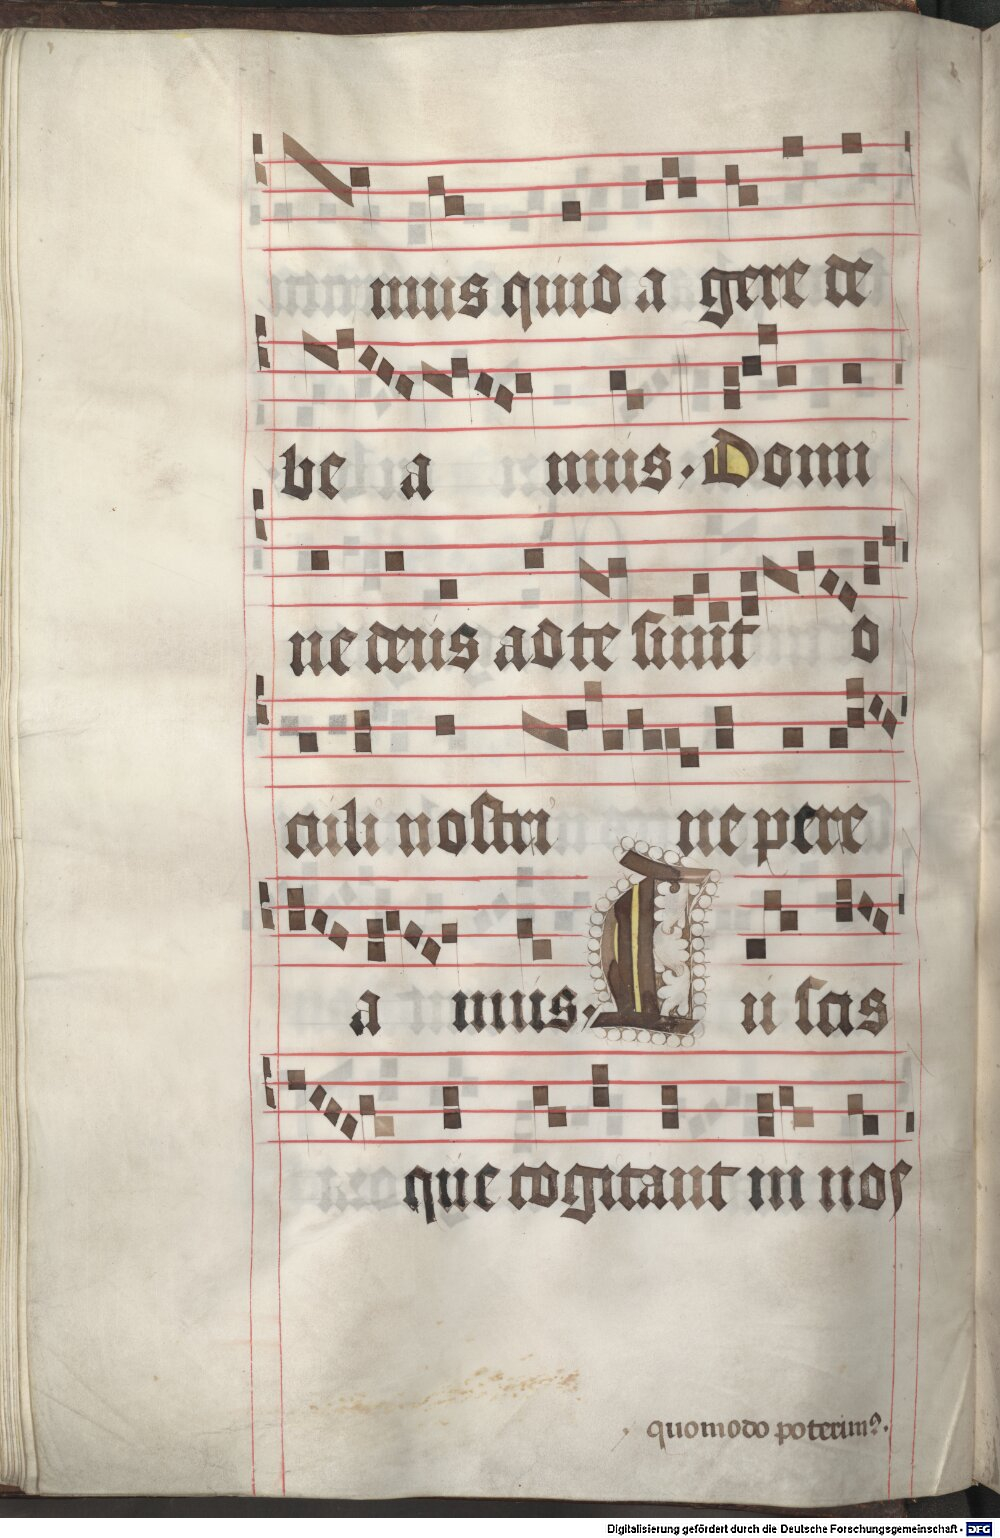 mus quid a gere de
be a mus. Domi
ne deus ad te sunt o
culi nostri ne pere
a mus. Tu scis
que cogitant in nos
. quomodo poterimꝰ.
Digitalisierung gefördert durch die Deutsche Forschungsgemeinschaft - DFG